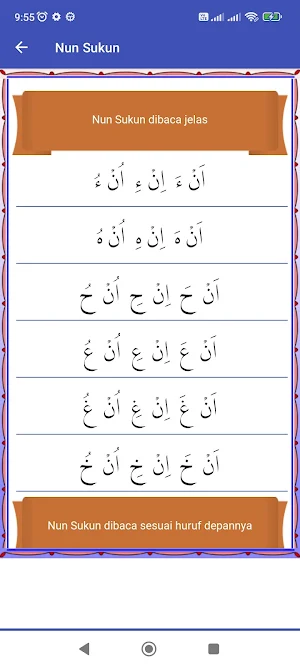 9:55
Nun Sukun
Nun Sukun dibaca jelas
اَنْ ءَ اِنْ ءِ اُنْ ءُ
اَنْ هَ اِنْ هِ اُنْ هُ
اَنْ حَ اِنْ حِ اُنْ حُ
اَنْ عَ اِنْ عِ اُنْ عُ
اَنْ غَ اِنْ غِ اُنْ غُ
اَنْ خَ اِنْ خِ اُنْ خُ
Nun Sukun dibaca sesuai huruf depannya